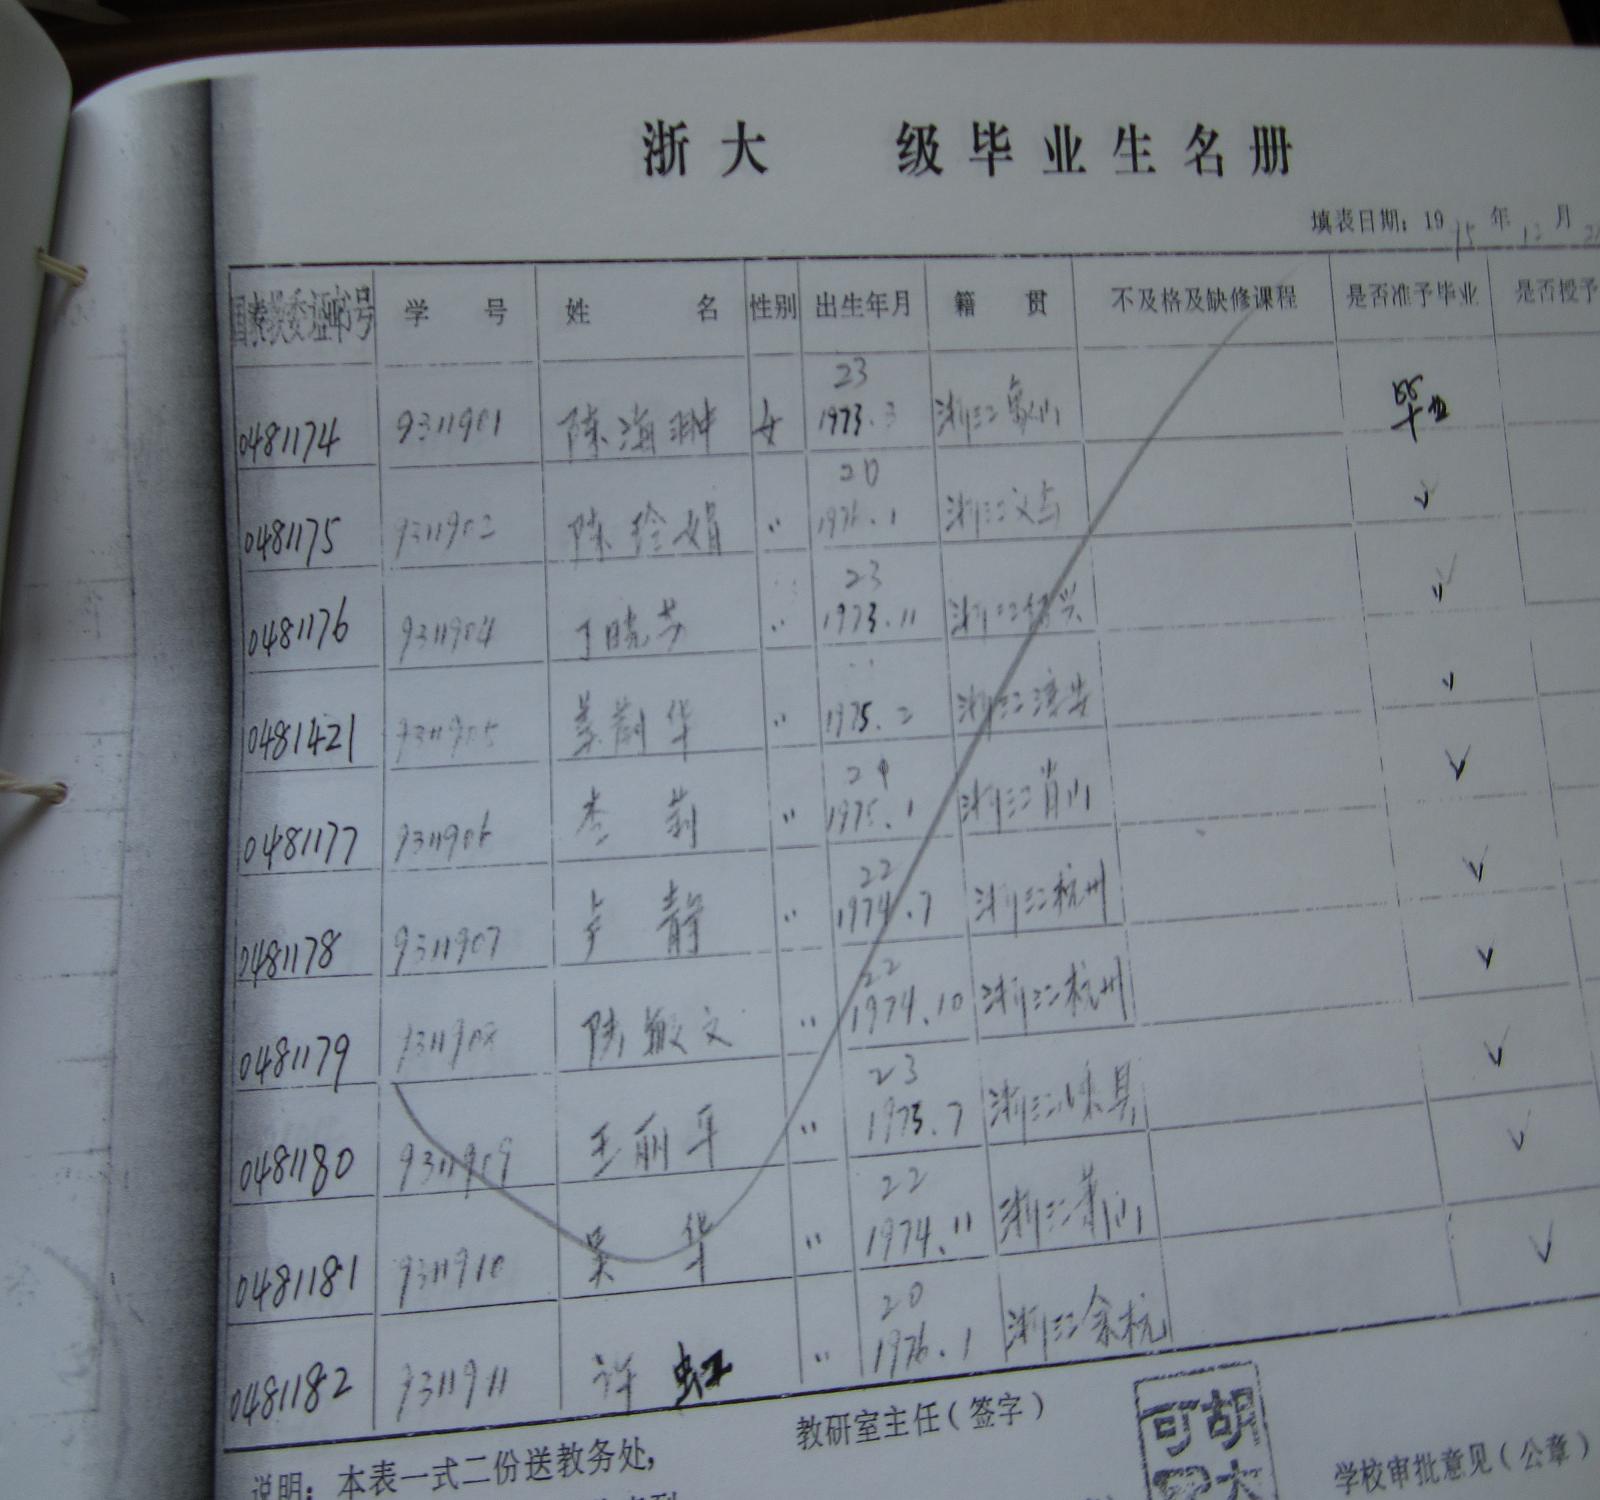 浙大 级毕业生名册
填表日期：1995年12月
国家教委证书号 学号 姓名 性别 出生年月 籍贯 不及格及缺修课程 是否准予毕业 是否授予
23
0481174 9311901 陈海翀 女 1973.3 浙江象山 毕业
20
0481175 9311902 陈玲娟 〃 1976.1 浙江义乌 ✓
23
0481176 9311904 丁晓芳 〃 1973.11 浙江绍兴 ✓
0481421 9311905 姜莉华 〃 1975.2 浙江淳安 ✓
21
0481177 9311906 李莉 〃 1975.1 浙江肖山 ✓
22
0481178 9311907 卢静 〃 1974.7 浙江杭州 ✓
22
0481179 9311908 陆敏文 〃 1974.10 浙江杭州 ✓
23
0481180 9311909 王丽平 〃 1973.7 浙江嵊县 ✓
22
0481181 9311910 吴华 〃 1974.11 浙江萧山 ✓
20
0481182 9311911 许虹 〃 1976.1 浙江余杭 ✓
教研室主任（签字）
说明：本表一式二份送教务处，
学校审批意见（公章）